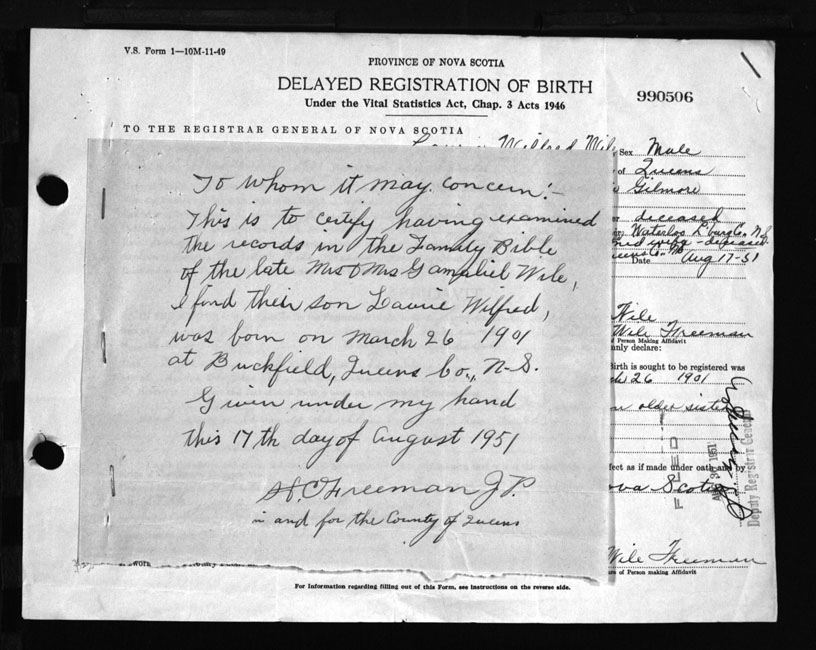 V.S. Form 1—10M-11-49
PROVINCE OF NOVA SCOTIA
DELAYED REGISTRATION OF BIRTH
Under the Vital Statistics Act, Chap. 3 Acts 1946
990506
TO THE REGISTRAR GENERAL OF NOVA SCOTIA
Wilfred Wile Sex Male
of Queens
Gilmore
deceased
Waterloo L'burg Co. N.S.
deceased
Date Aug 17-51
To whom it may concern:—
This is to certify having examined
the records in the Family Bible
of the late Mr & Mrs Gamaliel Wile,
I find their son Laurie Wilfred,
was born on March 26 1901
at Buckfield, Queens Co., N-S.
Given under my hand
this 17th day of August 1951
H.C. Freeman J.P.
in and for the County of Queens
Wile
Wile Freeman
of Person Making Affidavit
nly declare:
Birth is sought to be registered was
ch 26 1901
an older sister
fect as if made under oath and by
ova Scotia
FILED
1951
Deputy Registrar General
Wile Freeman
ure of Person making Affidavit
WOTE
For Information regarding filling out of this Form, see instructions on the reverse side.